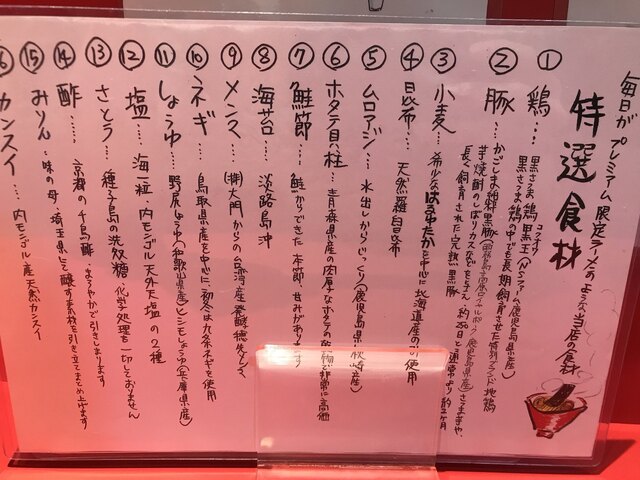 毎日が プレミアム 限定ラーメンのような当店の食材
特選食材
① 鶏… 黒さつま鶏 黒王(
黒さつま鶏の中でも長期飼育させた特別ブランド地鶏
② 豚… かごしま
芋焼酎のしぼりカスなどを与え、約
長く飼育された完熟黒豚
③ 小麦… 希少なはるゆたかを中心に北海道産のみ使用
④ 昆布… 天然羅臼昆布
⑤ ムロアジ… 水出しからじっくり(鹿児島県 枕崎産)
⑥ ホタテ貝柱… 青森県産の肉厚なホタテの乾物で非常に高価
⑦ 鮭節… 鮭からできた本節、甘みがあります
⑧ 海苔… 淡路島沖
⑨ メンマ… (株)大門からの台湾産発酵穂先メンマ
⑩ ネギ… 鳥取県産を中心に、初冬は九条ネギを使用
⑪ しょうゆ… 野尻しょうゆ(和歌山県産)ヒシモしょうゆ(兵庫県産)
⑫ 塩… 海一粒、内モンゴル天外天塩の2種
⑬ さとう… 種子島の洗双糖 化学処理を一切しておりません
⑭ 酢…… 京都の千鳥酢 まろやかで引きしまります
⑮ みりん… 味の母、埼玉県にて醸す素材を引き立てまとめ上げます
カンスイ… 内モンゴル産天然カンスイ